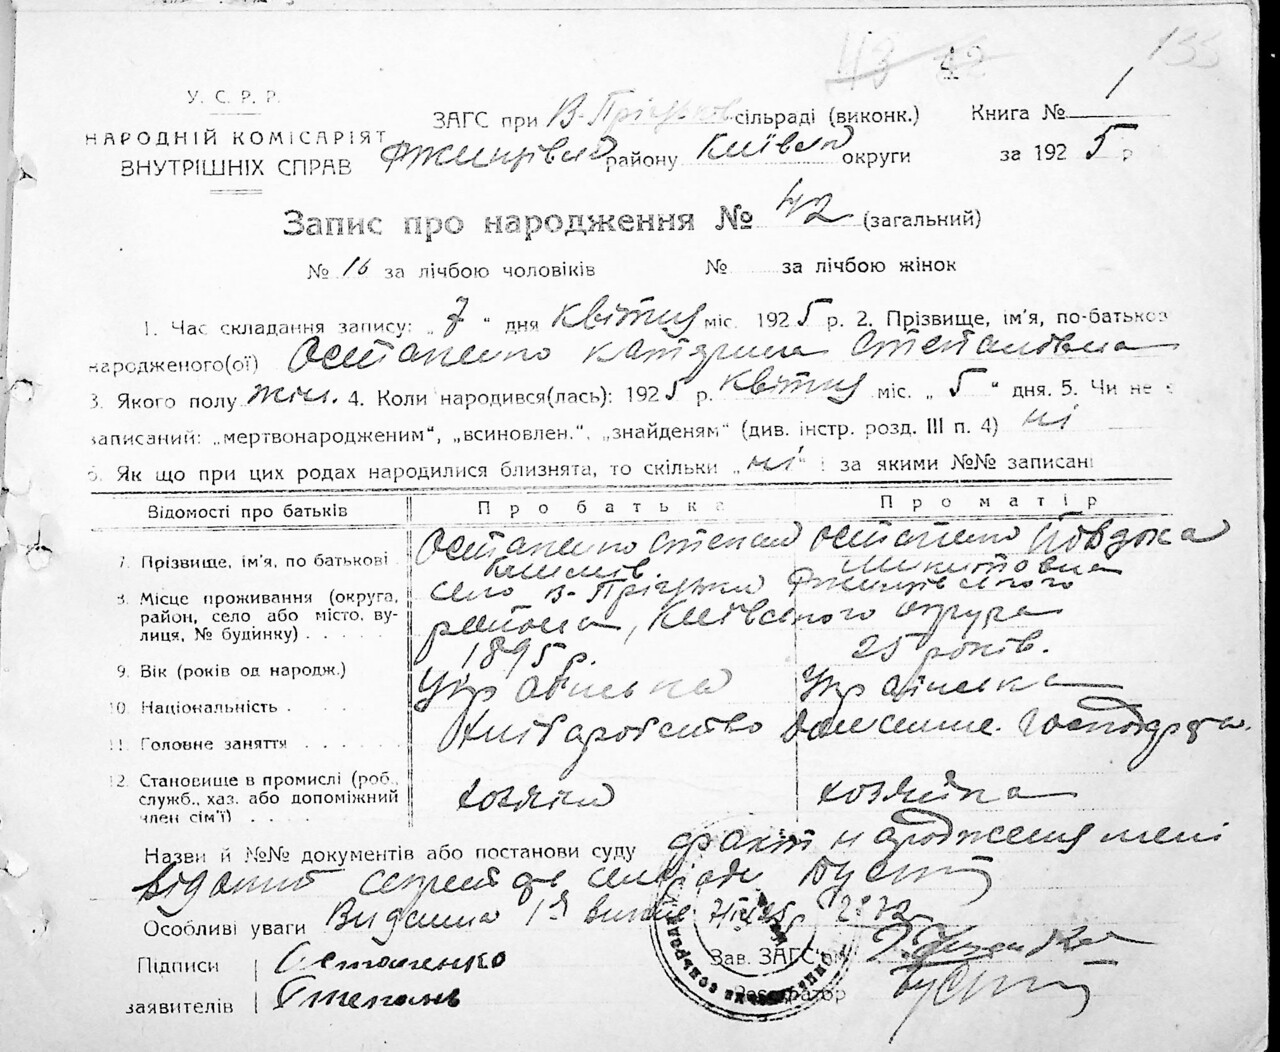 43 42 155
У. С. Р. Р.
НАРОДНІЙ КОМІСАРІЯТ
ВНУТРІШНІХ СПРАВ
ЗАГС при В-Пріцьков сільраді (виконк.) Книга № 1
Ржищівск району Київск округи за 1925 р
Запис про народження № 42 (загальний)
№ 16 за лічбою чоловіків № за лічбою жінок
1. Час складання запису: „ 7 “ дня квітня міс. 1925 р. 2. Прізвище, ім'я, по-батькові
народженого(ої) Остапенко Катерина Степановна
3. Якого полу жін. 4. Коли народився(лась): 1925 р. квітня міс. „ 5 “ дня. 5. Чи не є
записаний: „мертвонародженим“, „всиновлен.“, „знайденям“ (див. інстр. розд. III п. 4) ні
6. Як що при цих родах народилися близнята, то скільки „ні“ і за якими №№ записані
Відомості про батьків Про батька Про матір
7. Прізвище, ім'я, по батькові Остапенко Степан Остапенко Явдоха Микитовна
8. Місце проживання (округа, район, село або місто, вулиця, № будинку) село В-Пріцьки Ржищівського
района, Київського округа
9. Вік (років од народж.) 1895 р. 25 років.
10. Національність Українська Українська
11. Головне заняття Хліборобство Домашне. господарка.
12. Становище в промислі (роб., служб., хаз. або допоміжний член сім'ї) хозяїн хозяйка
Назви й №№ документів або постанови суду факт народження мені
відомий секретар сельради
Особливі уваги Видана
Підписи Остапенко Зав. ЗАГС'ом
заявителів Степань Реєстратор